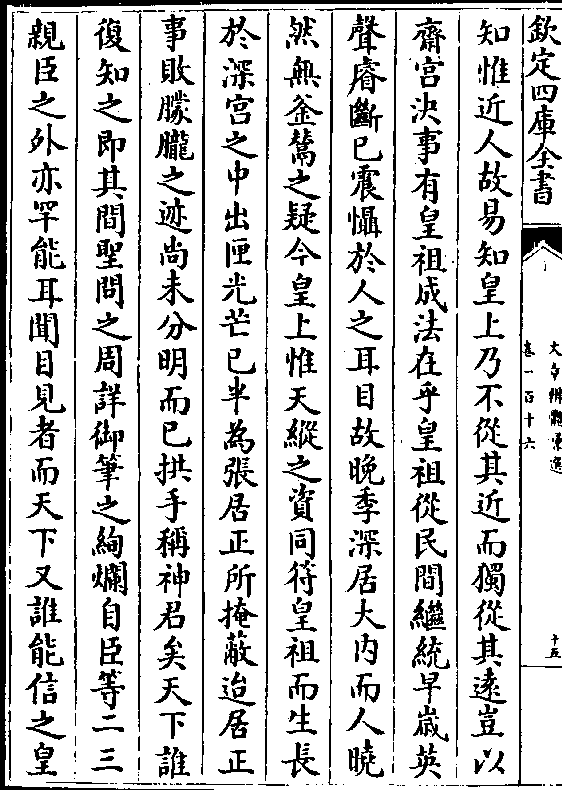 欽定四庫全書
卷一百十六
十五
知惟近人故易知皇上乃不從其近而獨從其遠豈以
齋宫決事有皇祖成法在乎皇祖從民間繼統早歳英
聲睿斷已震懾於人之耳目故晩季深居大内而人曉
然無釜鬵之疑今皇上惟天縱之資同符皇祖而生長
於深宫之中出匣光芒已半為張居正所掩蔽迨居正
事敗朦朧之迹尚未分明而已拱手稱神君矣天下誰
復知之即其間聖問之周詳御筆之絢爛自臣等二三
親臣之外亦罕能耳聞目見者而天下又誰能信之皇